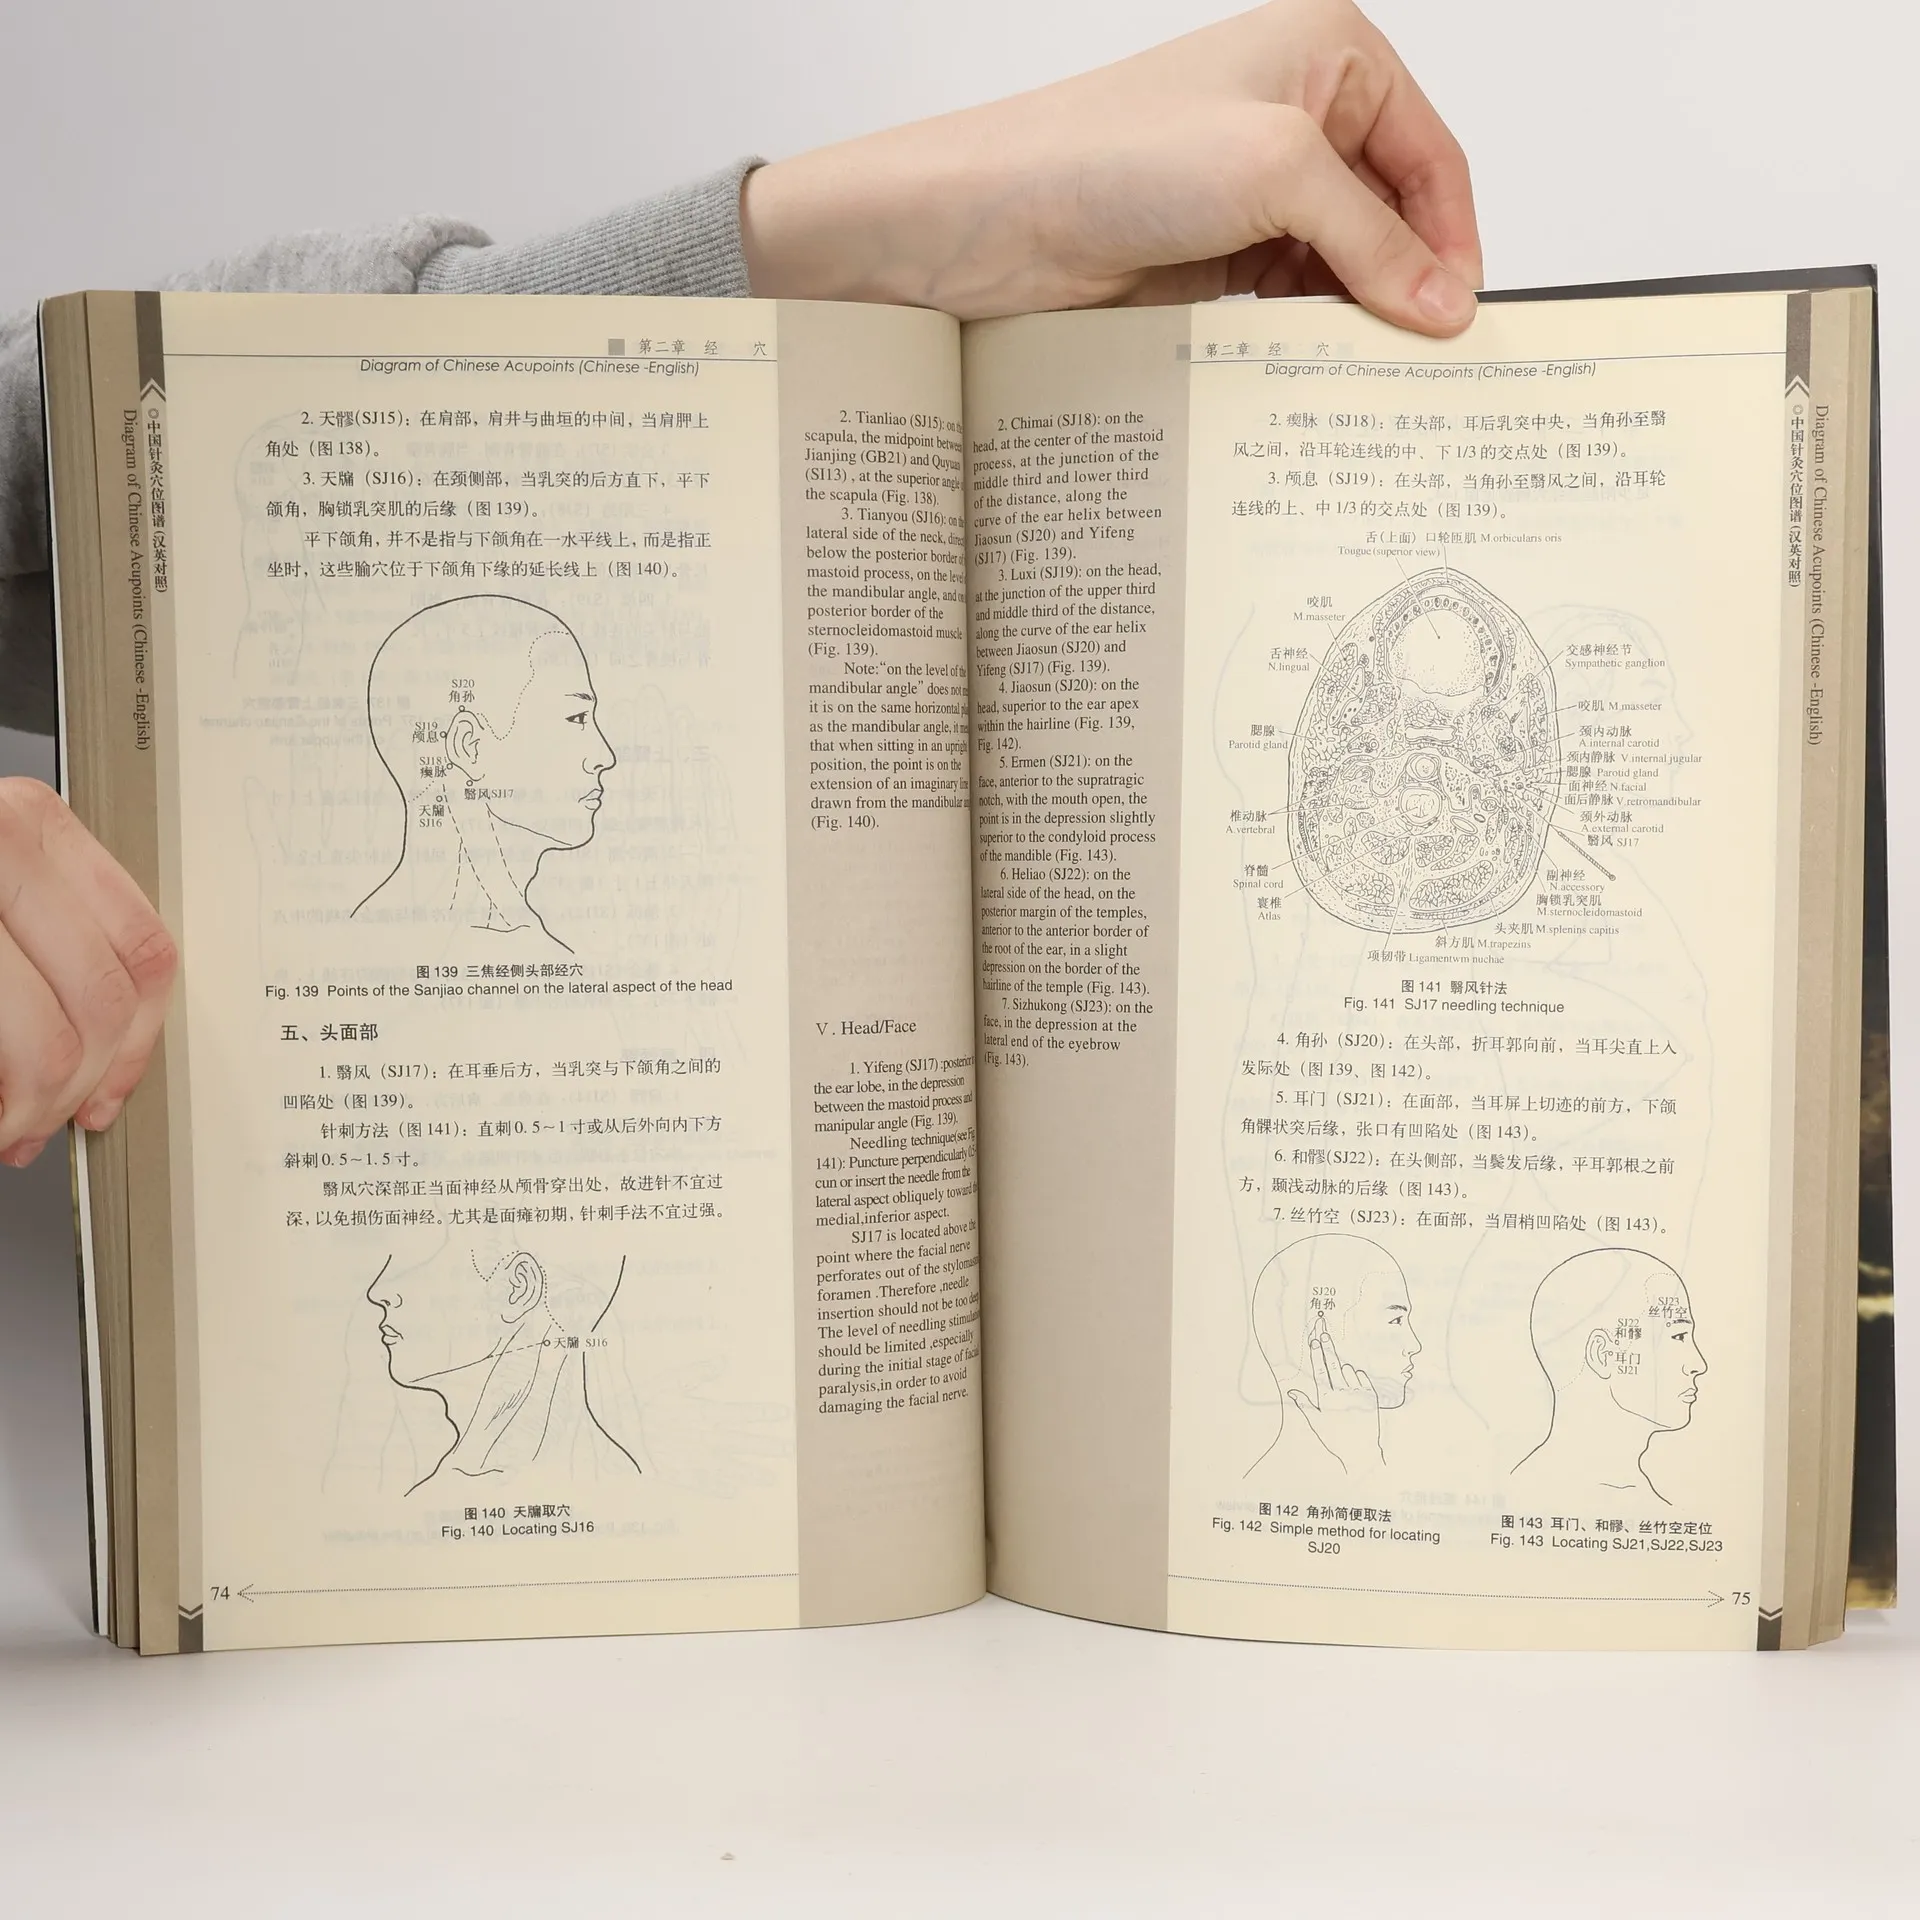 第二章 经 穴
Diagram of Chinese Acupoints (Chinese -English)
◎中国针灸穴位图谱(汉英对照)
Diagram of Chinese Acupoints (Chinese -English)
2. 天髎(SJ15)：在肩部，肩井与曲垣的中间，当肩胛上
角处（图 138）。
3. 天牖（SJ16）：在颈侧部，当乳突的后方直下，平下
颌角，胸锁乳突肌的后缘（图 139）。
平下颌角，并不是指与下颌角在一水平线上，而是指正
坐时，这些腧穴位于下颌角下缘的延长线上（图 140）。
SJ20
角孙
SJ19
颅息
SJ18
瘈脉
翳风SJ17
天牖
SJ16
图 139 三焦经侧头部经穴
Fig. 139 Points of the Sanjiao channel on the lateral aspect of the head
五、头面部
1. 翳风（SJ17）：在耳垂后方，当乳突与下颌角之间的
凹陷处（图 139）。
针刺方法（图 141）：直刺 0. 5～1 寸或从后外向内下方
斜刺 0. 5～1. 5 寸。
翳风穴深部正当面神经从颅骨穿出处，故进针不宜过
深，以免损伤面神经。尤其是面瘫初期，针刺手法不宜过强。
天牖 SJ16
图 140 天牖取穴
Fig. 140 Locating SJ16
74
2. Tianliao (SJ15): on
scapula, the midpoint between
Jianjing (GB21) and Quyuan
(SI13) , at the superior angle
the scapula (Fig. 138).
3. Tianyou (SJ16): on
lateral side of the neck,
below the posterior border
mastoid process, on the level
the mandibular angle, and
posterior border of the
sternocleidomastoid muscle
(Fig. 139).
Note:"on the level of the
mandibular angle" does not
it is on the same horizontal
as the mandibular angle, it
that when sitting in an upright
position, the point is on the
extension of an imaginary
drawn from the mandibular
(Fig. 140).
V . Head/Face
1. Yifeng (SJ17) :posterior
the ear lobe, in the depression
between the mastoid process and
manipular angle (Fig. 139).
Needling technique(see Fig
141): Puncture perpendicularly
cun or insert the needle from the
lateral aspect obliquely toward
medial,inferior aspect.
SJ17 is located above the
point where the facial nerve
perforates out of the
foramen .Therefore ,needle
insertion should not be too deep
The level of needling
should be limited ,especially
during the initial stage of
paralysis,in order to avoid
damaging the facial nerve.
第二章 经 穴
Diagram of Chinese Acupoints (Chinese -English)
2. Chimai (SJ18): on the
head, at the center of the mastoid
process, at the junction of the
middle third and lower third
of the distance, along the
curve of the ear helix between
Jiaosun (SJ20) and Yifeng
(SJ17) (Fig. 139).
3. Luxi (SJ19): on the head,
at the junction of the upper third
and middle third of the distance,
along the curve of the ear helix
between Jiaosun (SJ20) and
Yifeng (SJ17) (Fig. 139).
4. Jiaosun (SJ20): on the
head, superior to the ear apex
within the hairline (Fig. 139,
Fig. 142).
5. Ermen (SJ21): on the
face, anterior to the supratragic
notch, with the mouth open, the
point is in the depression slightly
superior to the condyloid process
of the mandible (Fig. 143).
6. Heliao (SJ22): on the
lateral side of the head, on the
posterior margin of the temples,
anterior to the anterior border of
the root of the ear, in a slight
depression on the border of the
hairline of the temple (Fig. 143).
7. Sizhukong (SJ23): on the
face, in the depression at the
lateral end of the eyebrow
(Fig. 143).
2. 瘈脉（SJ18）：在头部，耳后乳突中央，当角孙至翳
风之间，沿耳轮连线的中、下 1/3 的交点处（图 139）。
3. 颅息（SJ19）：在头部，当角孙至翳风之间，沿耳轮
连线的上、中 1/3 的交点处（图 139）。
舌（上面） 口轮匝肌 M.orbicularis oris
Tougue (superior view)
咬肌
M.masseter
舌神经
N.lingual
腮腺
Parotid gland
椎动脉
A.vertebral
脊髓
Spinal cord
寰椎
Atlas
交感神经节
Sympathetic ganglion
咬肌 M.masseter
颈内动脉
A.internal carotid
颈内静脉 V.internal jugular
腮腺 Parotid gland
面神经 N.facial
面后静脉 V.retromandibular
颈外动脉
A.external carotid
翳风 SJ17
副神经
N.accessory
胸锁乳突肌
M.sternocleidomastoid
头夹肌 M.splenins capitis
斜方肌 M.trapezins
项韧带 Ligamentwm nuchae
图 141 翳风针法
Fig. 141 SJ17 needling technique
4. 角孙（SJ20）：在头部，折耳郭向前，当耳尖直上入
发际处（图 139、图 142）。
5. 耳门（SJ21）：在面部，当耳屏上切迹的前方，下颌
角髁状突后缘，张口有凹陷处（图 143）。
6. 和髎(SJ22)：在头侧部，当鬓发后缘，平耳郭根之前
方，颞浅动脉的后缘（图 143）。
7. 丝竹空（SJ23）：在面部，当眉梢凹陷处（图 143）。
SJ20
角孙
SJ23
丝竹空
SJ22
和髎
耳门
SJ21
图 142 角孙简便取法
Fig. 142 Simple method for locating
SJ20
图 143 耳门、和髎、丝竹空定位
Fig. 143 Locating SJ21,SJ22,SJ23
75
◎中国针灸穴位图谱(汉英对照)
Diagram of Chinese Acupoints (Chinese -English)